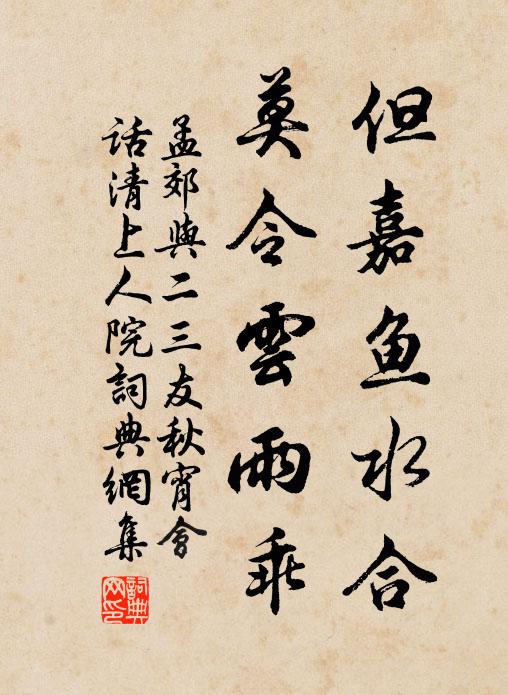 但嘉鱼水合
莫令雲雨乖
孟郊與二三友秋宵會
话清上人院詞典網集
詞典網印